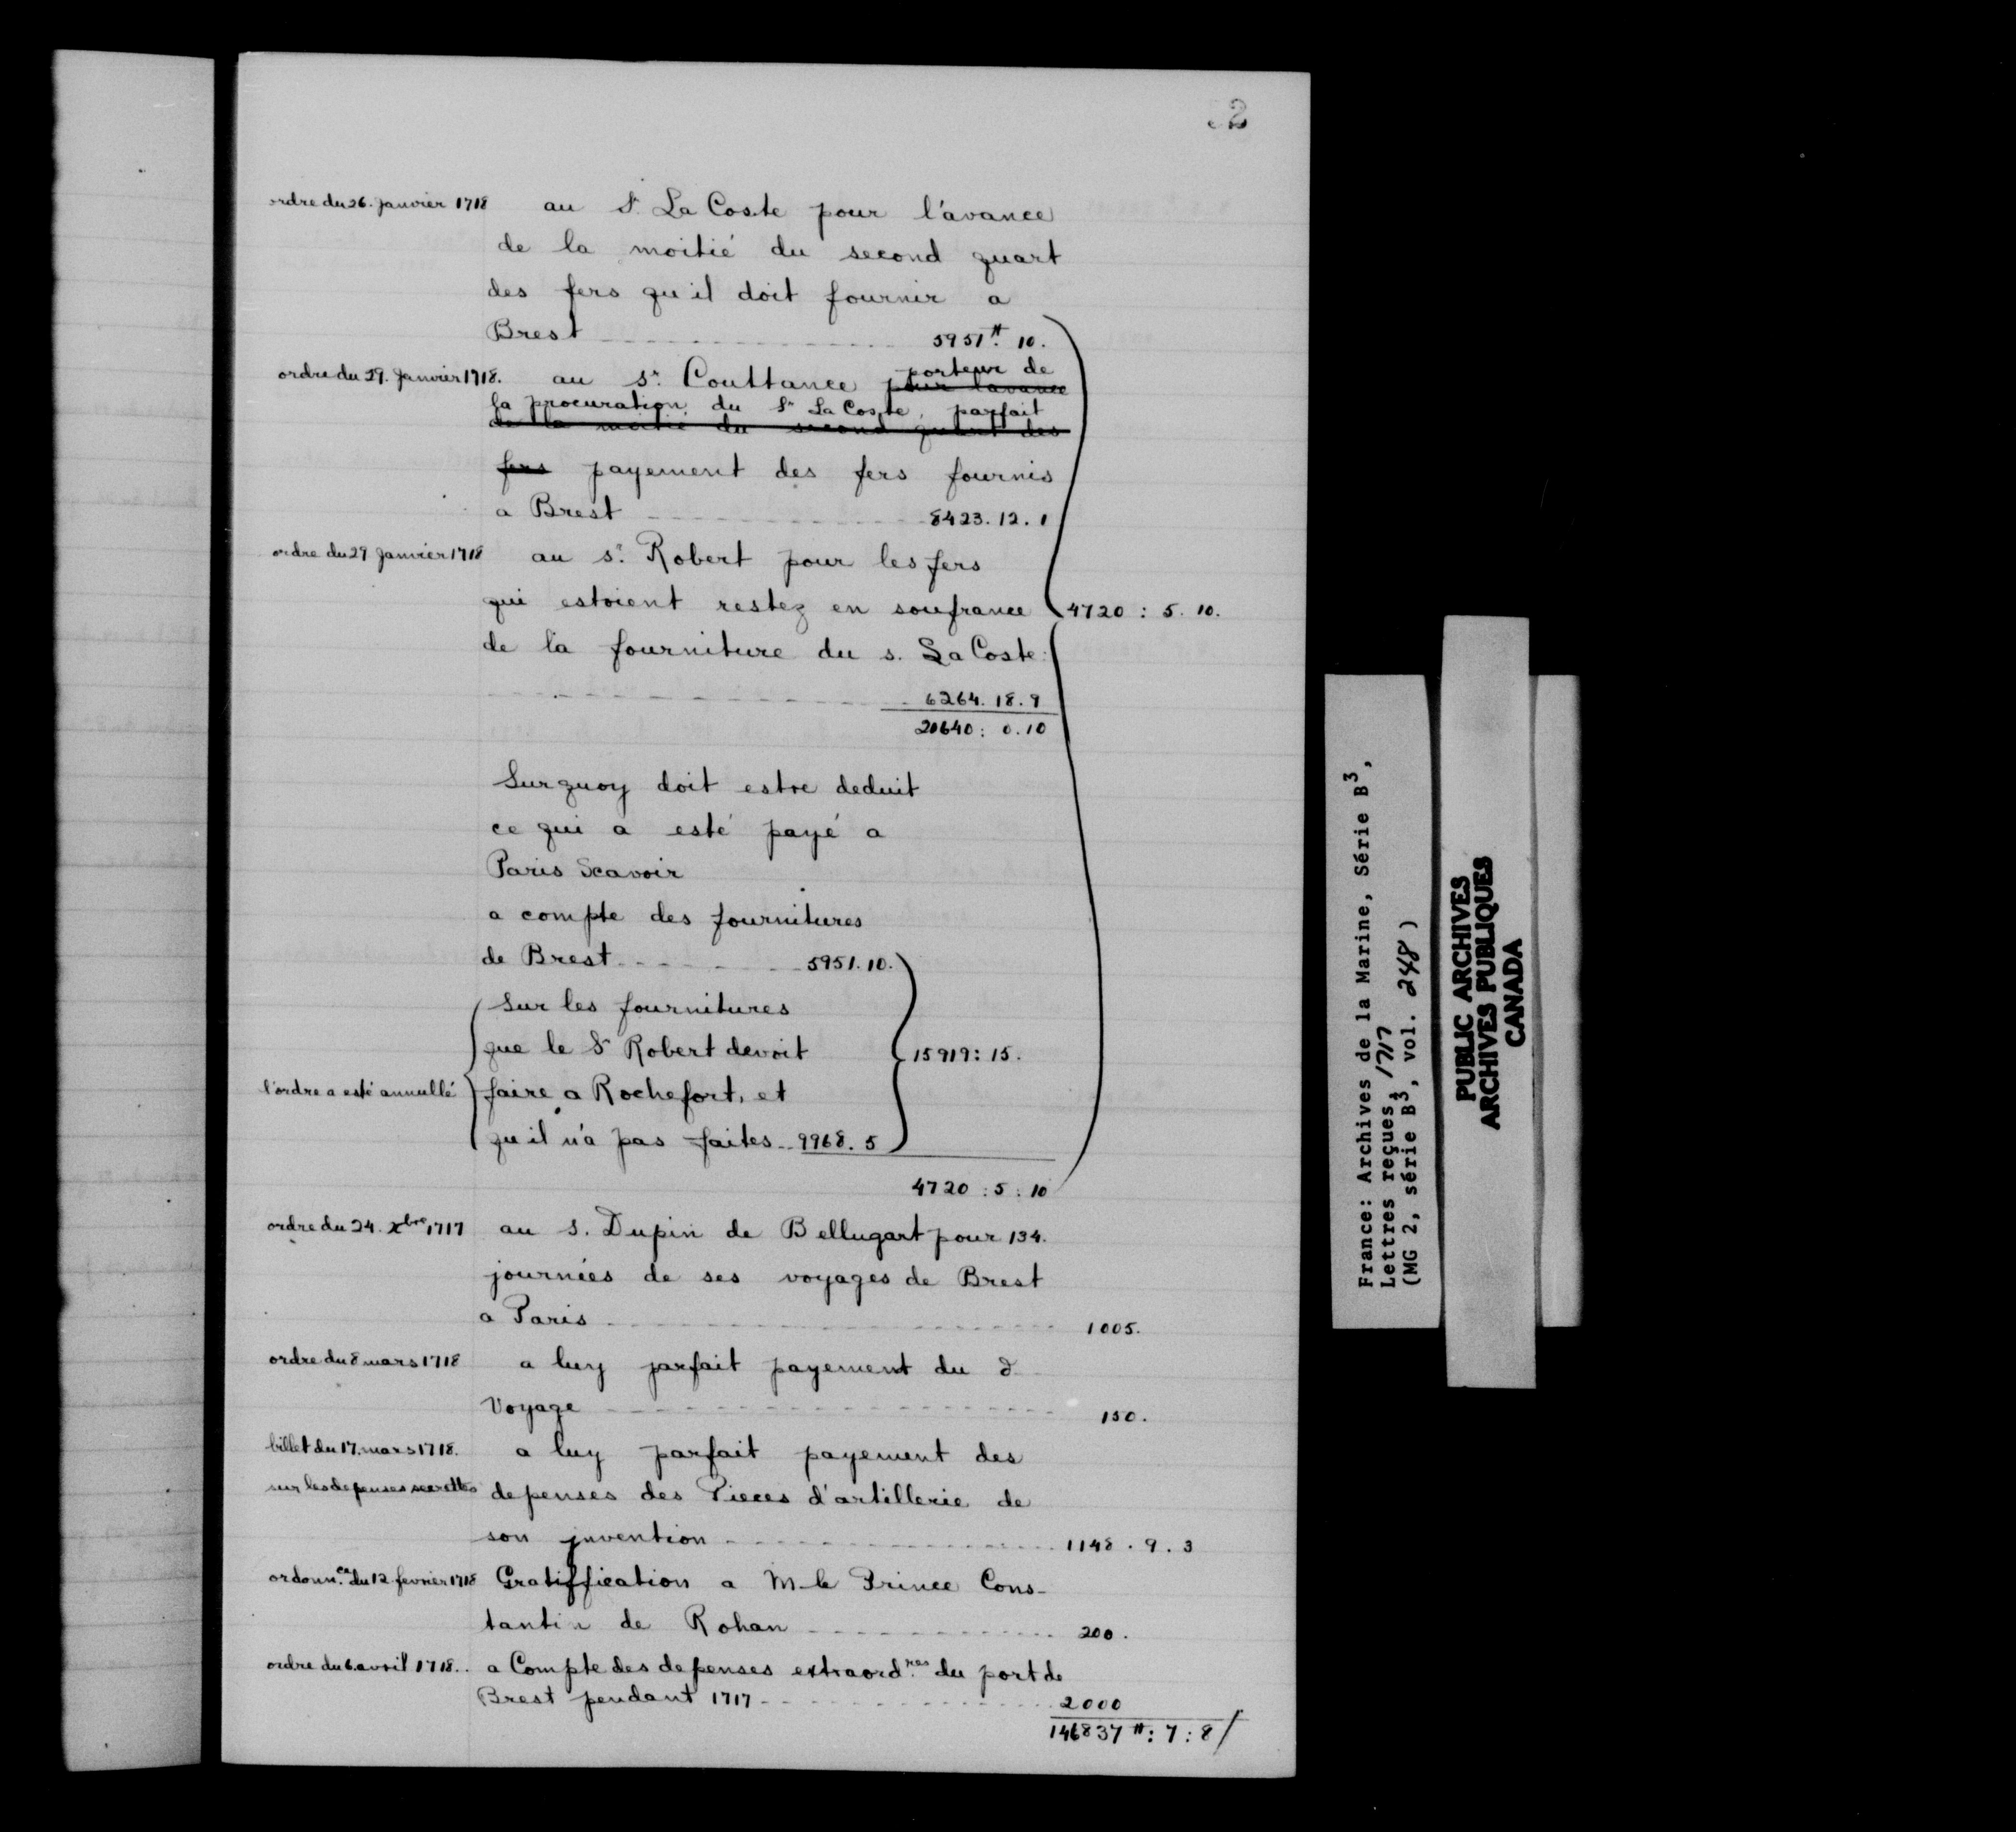 32
ordre du 26. Janvier 1718 au Sr. La Coste pour l'avance
de la moitié du second quart
des fers qu'il doit fournir a
Brest 5951#. 10.
ordre du 29. Janvier 1718. au sr. Couttance pour l'avance porteur de
la procuration du Sr La Coste, parfait
de la moitié du second quart des
fers payement des fers fournis
a Brest 8423. 12. 1
ordre du 29 Janvier 1718 au sr. Robert pour les fers
qui estoient restez en soufrance 4720 : 5. 10.
de la fourniture du s. La Coste
6264. 18. 9
20640 : 0. 10
Surquoy doit estre deduit
ce qui a esté payé a
Paris Scavoir
a compte des fournitures
de Brest 5951. 10.
Sur les fournitures
que le Sr Robert devoit 15919 : 15.
l'ordre a esté annullé faire a Rochefort, et
qu'il n'a pas faites 9968. 5
4720 : 5 : 10
ordre du 24. Xbre 1717 au s. Dupin de Bellugart pour 134.
journées de ses voyages de Brest
a Paris 1005.
ordre du 8 mars 1718 a luy parfait payement du d
Voyage 150.
billet du 17. mars 1718. a luy parfait payement des
sur les depenses secrettes depenses des Pieces d'artillerie de
son jnvention 1148. 9. 3
ordonn.ce du 12 fevrier 1718 Gratiffication a M le Prince Cons-
tantin de Rohan 200.
ordre du 6 avril 1718.. a Compte des depenses extraord.res du port de
Brest pendant 1717 2000
146837 # : 7 : 8/
France: Archives de la Marine, Série B3,
Lettres reçues, 1717
(MG 2, série B3, vol. 248)
PUBLIC ARCHIVES
ARCHIVES PUBLIQUES
CANADA